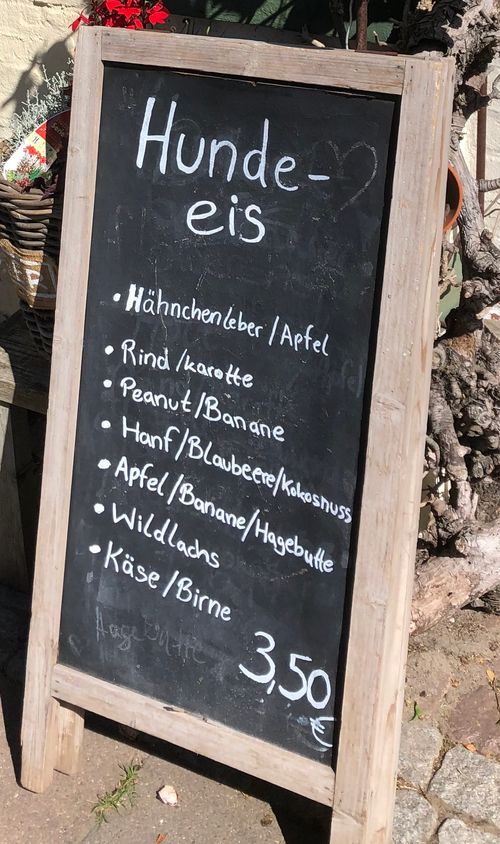 Hunde-
eis
• Hähnchenleber/Apfel
• Rind/Karotte
• Peanut/Banane
• Hanf/Blaubeere/Kokosnuss
• Apfel/Banane/Hagebutte
• Wildlachs
• Käse/Birne
3,50
€